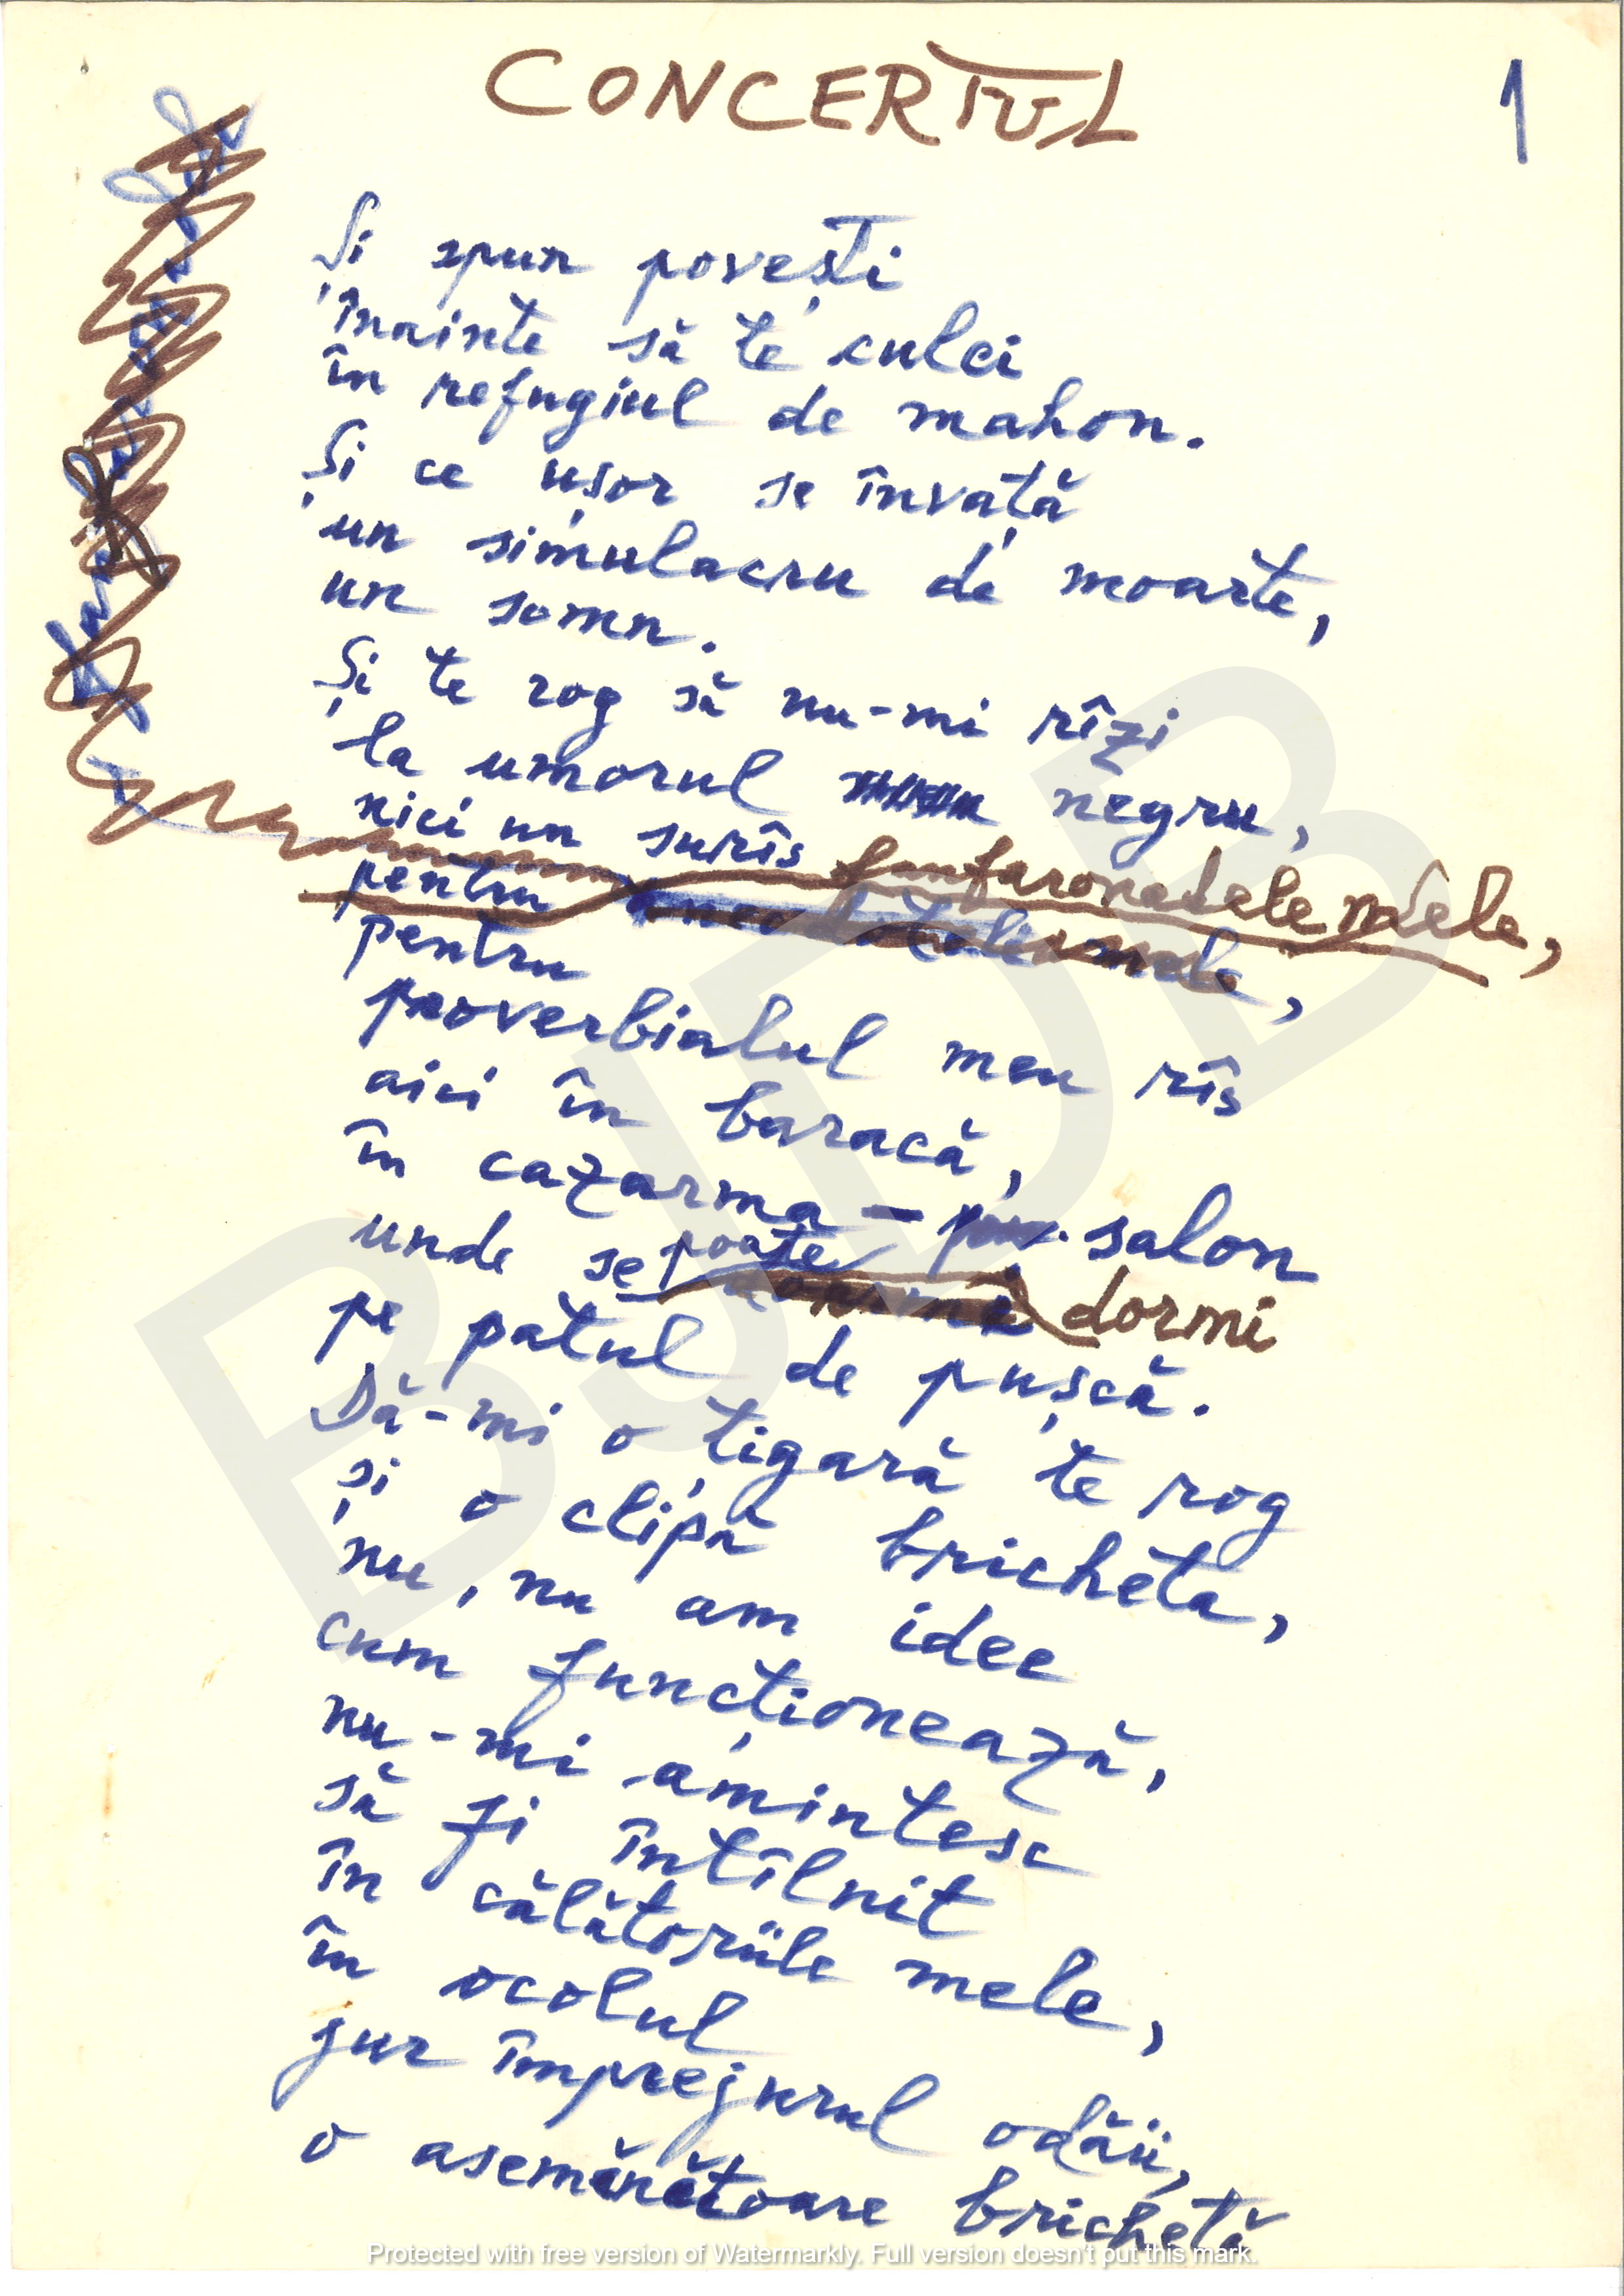 CONCERTUL
1
Și spun povești
înainte să te culci
în refugiul de mahon.
Și ce ușor se învață
un simulacru de moarte,
un somn.
Și te rog să nu-mi rîzi
la umorul negru,
nici un surîs
pentru fanfaronadele mele,
pentru
proverbialul meu rîs
aici în baracă,
în cazarma - salon
unde se poate dormi
pe patul de pușcă.
Dă-mi o țigară te rog
și o clipă bricheta,
nu, nu am idee
cum funcționează,
nu-mi amintesc
să fi întîlnit
în călătoriile mele,
în ocolul
jur împrejurul odăii,
o asemănătoare brichetă
BJDB
Protected with free version of Watermarkly. Full version doesn't put this mark.